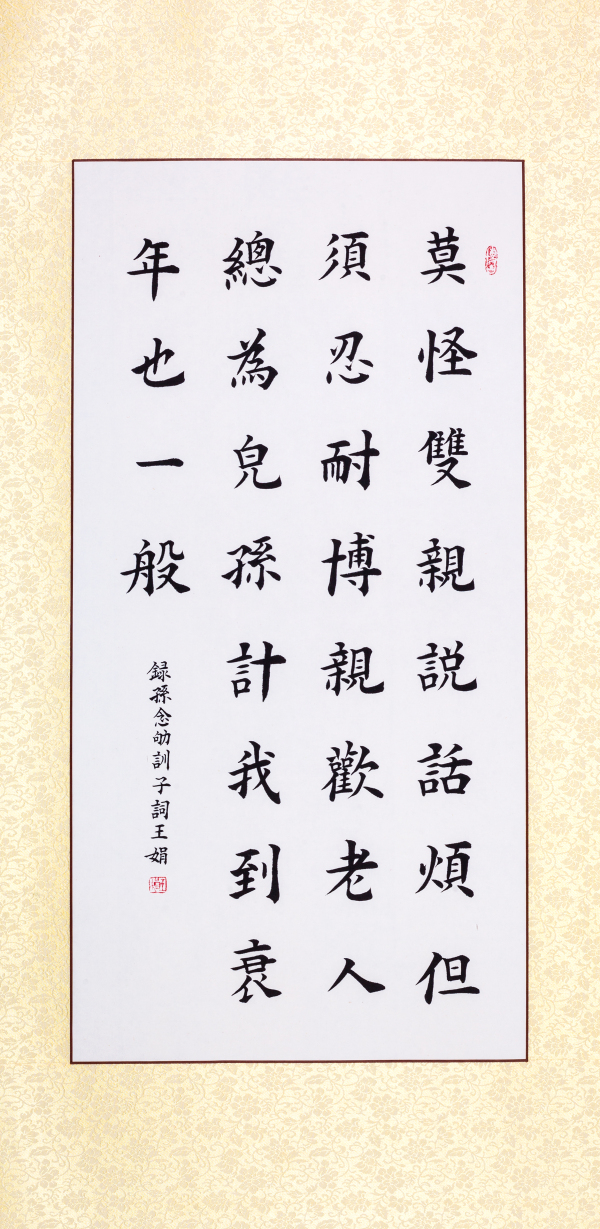 莫怪雙親説話煩但
須忍耐博親歡老人
總為兒孫計我到衰
年也一般
録孫念劬訓子詞王娟